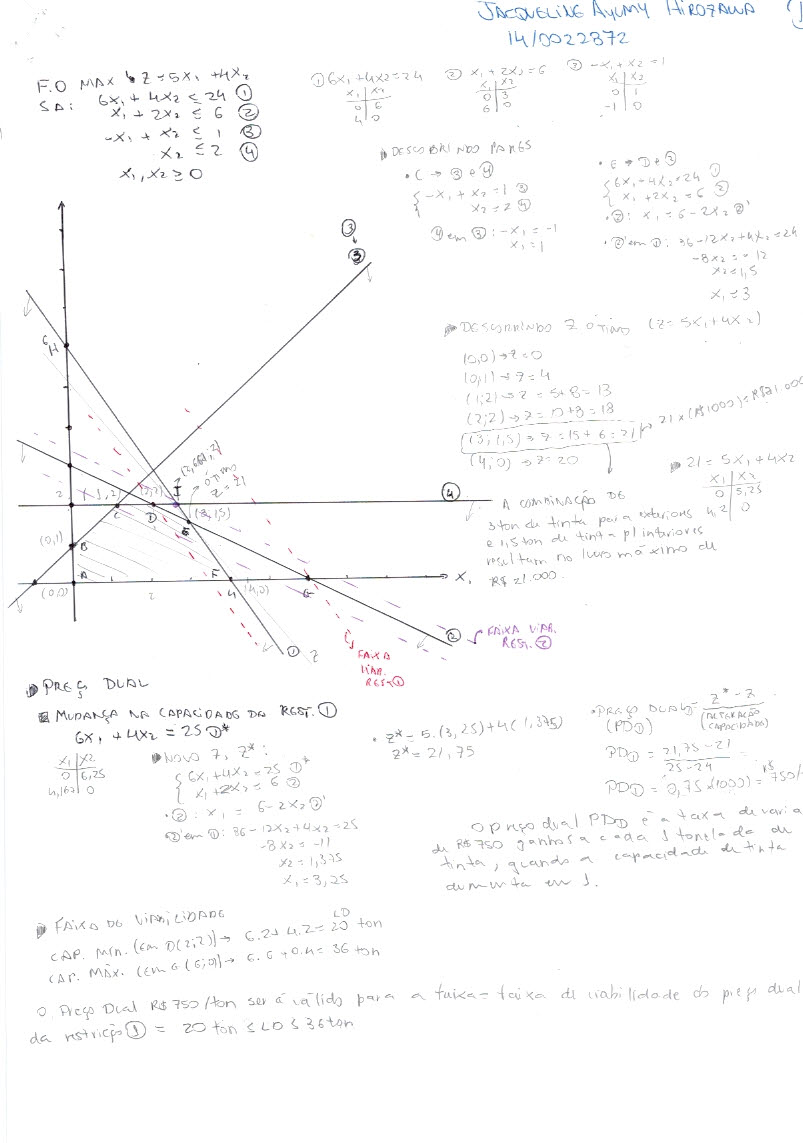 JACQUELINE AYUMY HIROZAWA
14/0022372
F.O MAX Z = 5X₁ + 4X₂
S.A: 6X₁ + 4X₂ ≤ 24 ①
X₁ + 2X₂ ≤ 6 ②
-X₁ + X₂ ≤ 1 ③
X₂ ≤ 2 ④
X₁, X₂ ≥ 0
① 6X₁ + 4X₂ = 24
X₁ X₂
0 6
4 0
② X₁ + 2X₂ = 6
X₁ X₂
0 3
6 0
③ -X₁ + X₂ = 1
X₁ X₂
0 1
-1 0
DESCOBRINDO PARES
• C → ③ e ④
-X₁ + X₂ = 1 ③
X₂ = 2 ④
④ em ③: -X₁ = -1
X₁ = 1
• E → ① e ②
6X₁ + 4X₂ = 24 ①
X₁ + 2X₂ = 6 ②
• ②: X₁ = 6 - 2X₂ ②'
• ②' em ①: 36 - 12X₂ + 4X₂ = 24
-8X₂ = -12
X₂ = 1,5
X₁ = 3
DESCOBRINDO Z ÓTIMO (Z = 5X₁ + 4X₂)
(0,0) → Z = 0
(0,1) → Z = 4
(1;2) → Z = 5 + 8 = 13
(2;2) → Z = 10 + 8 = 18
(3; 1,5) → Z = 15 + 6 = 21 → 21 x (R$1000) = R$21.000
(4;0) → Z = 20
21 = 5X₁ + 4X₂
X₁ X₂
0 5,25
4,2 0
A COMBINAÇÃO DE
3 ton de tinta para exteriores
e 1,5 ton de tinta p/ interiores
resultam no lucro máximo de
R$ 21.000.
③
③
6 H
2
(1,2)
(2,2)
I
(2,667; 2)
ótimo
Z = 21
(3; 1,5)
④
C
D
E
(0,1)
B
A
(0,0)
2
F
4
(4,0)
G
X₁
①
Z
②
FAIXA
VIAB.
REST. ①
FAIXA VIAB.
REST. ②
PREÇO DUAL
MUDANÇA NA CAPACIDADE DA REST. ①
6X₁ + 4X₂ = 25 ①*
X₁ X₂
0 6,25
4,167 0
NOVO Z, Z*:
6X₁ + 4X₂ = 25 ①*
X₁ + 2X₂ = 6 ②
• ②: X₁ = 6 - 2X₂ ②'
②' em ①: 36 - 12X₂ + 4X₂ = 25
-8X₂ = -11
X₂ = 1,375
X₁ = 3,25
• Z* = 5.(3,25) + 4(1,375)
Z* = 21,75
• PREÇO DUAL = Z* - Z
(PD①) (ALTERAÇÃO CAPACIDADE)
PD① = 21,75 - 21 =
25 - 24
PD① = 0,75 x (1000) = R$ 750/
O preço dual PD① é a taxa de varia
de R$ 750 ganhos a cada 1 tonelada de
tinta, quando a capacidade de tinta
aumenta em 1.
FAIXA DE VIABILIDADE
CAP. MÍN. (em D(2;2)) → 6.2 + 4.2 = 20 ton
LD
CAP. MÁX. (em G(6;0)) → 6.6 + 0.4 = 36 ton
O Preço Dual R$ 750/ton será válido para a faixa = faixa de viabilidade do preço dual
da restrição ① = 20 ton ≤ LD ≤ 36 ton